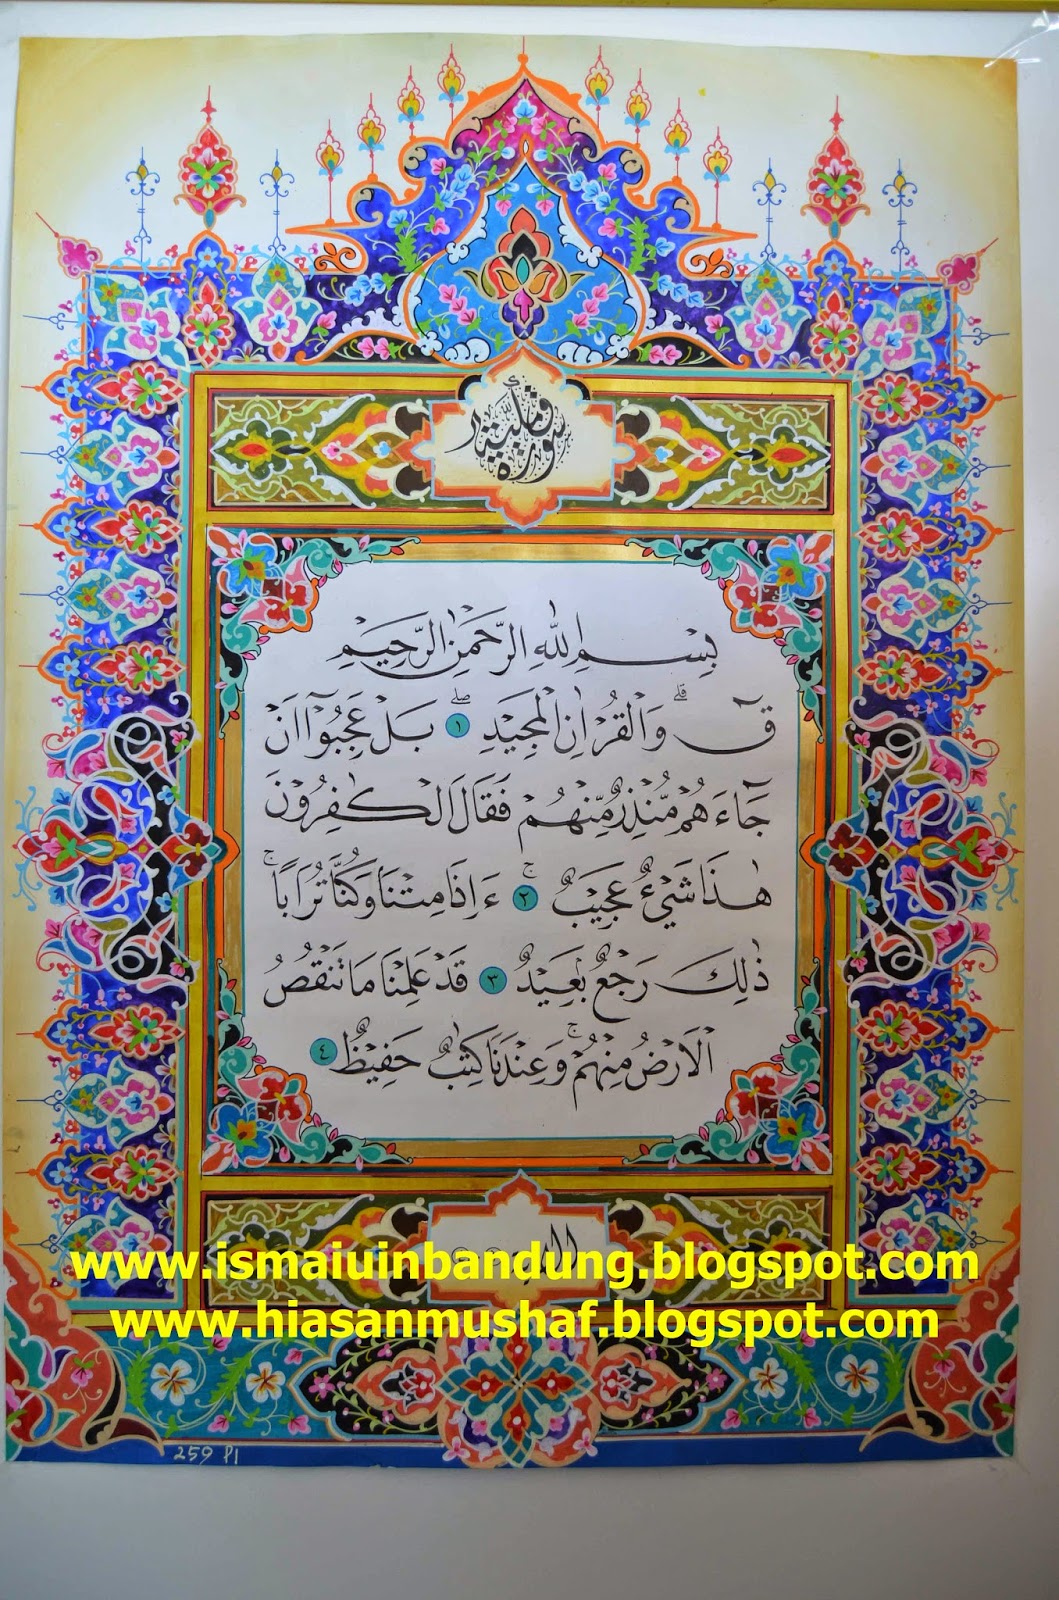 سورة ق
بِسْمِ اللهِ الرَّحْمٰنِ الرَّحِيْمِ
قۤ ۗ وَالْقُرْاٰنِ الْمَجِيْدِ ۖ ١ بَلْ عَجِبُوْٓا اَنْ
جَاۤءَهُمْ مُّنْذِرٌ مِّنْهُمْ فَقَالَ الْكٰفِرُوْنَ
هٰذَا شَيْءٌ عَجِيْبٌ ۚ ٢ ءَاِذَا مِتْنَا وَكُنَّا تُرَابًا ۚ
ذٰلِكَ رَجْعٌ بَعِيْدٌ ٣ قَدْ عَلِمْنَا مَا تَنْقُصُ
الْاَرْضُ مِنْهُمْ ۚ وَعِنْدَنَا كِتٰبٌ حَفِيْظٌ ٤
www.ismaiuinbandung.blogspot.com
www.hiasanmushaf.blogspot.com
259 P1